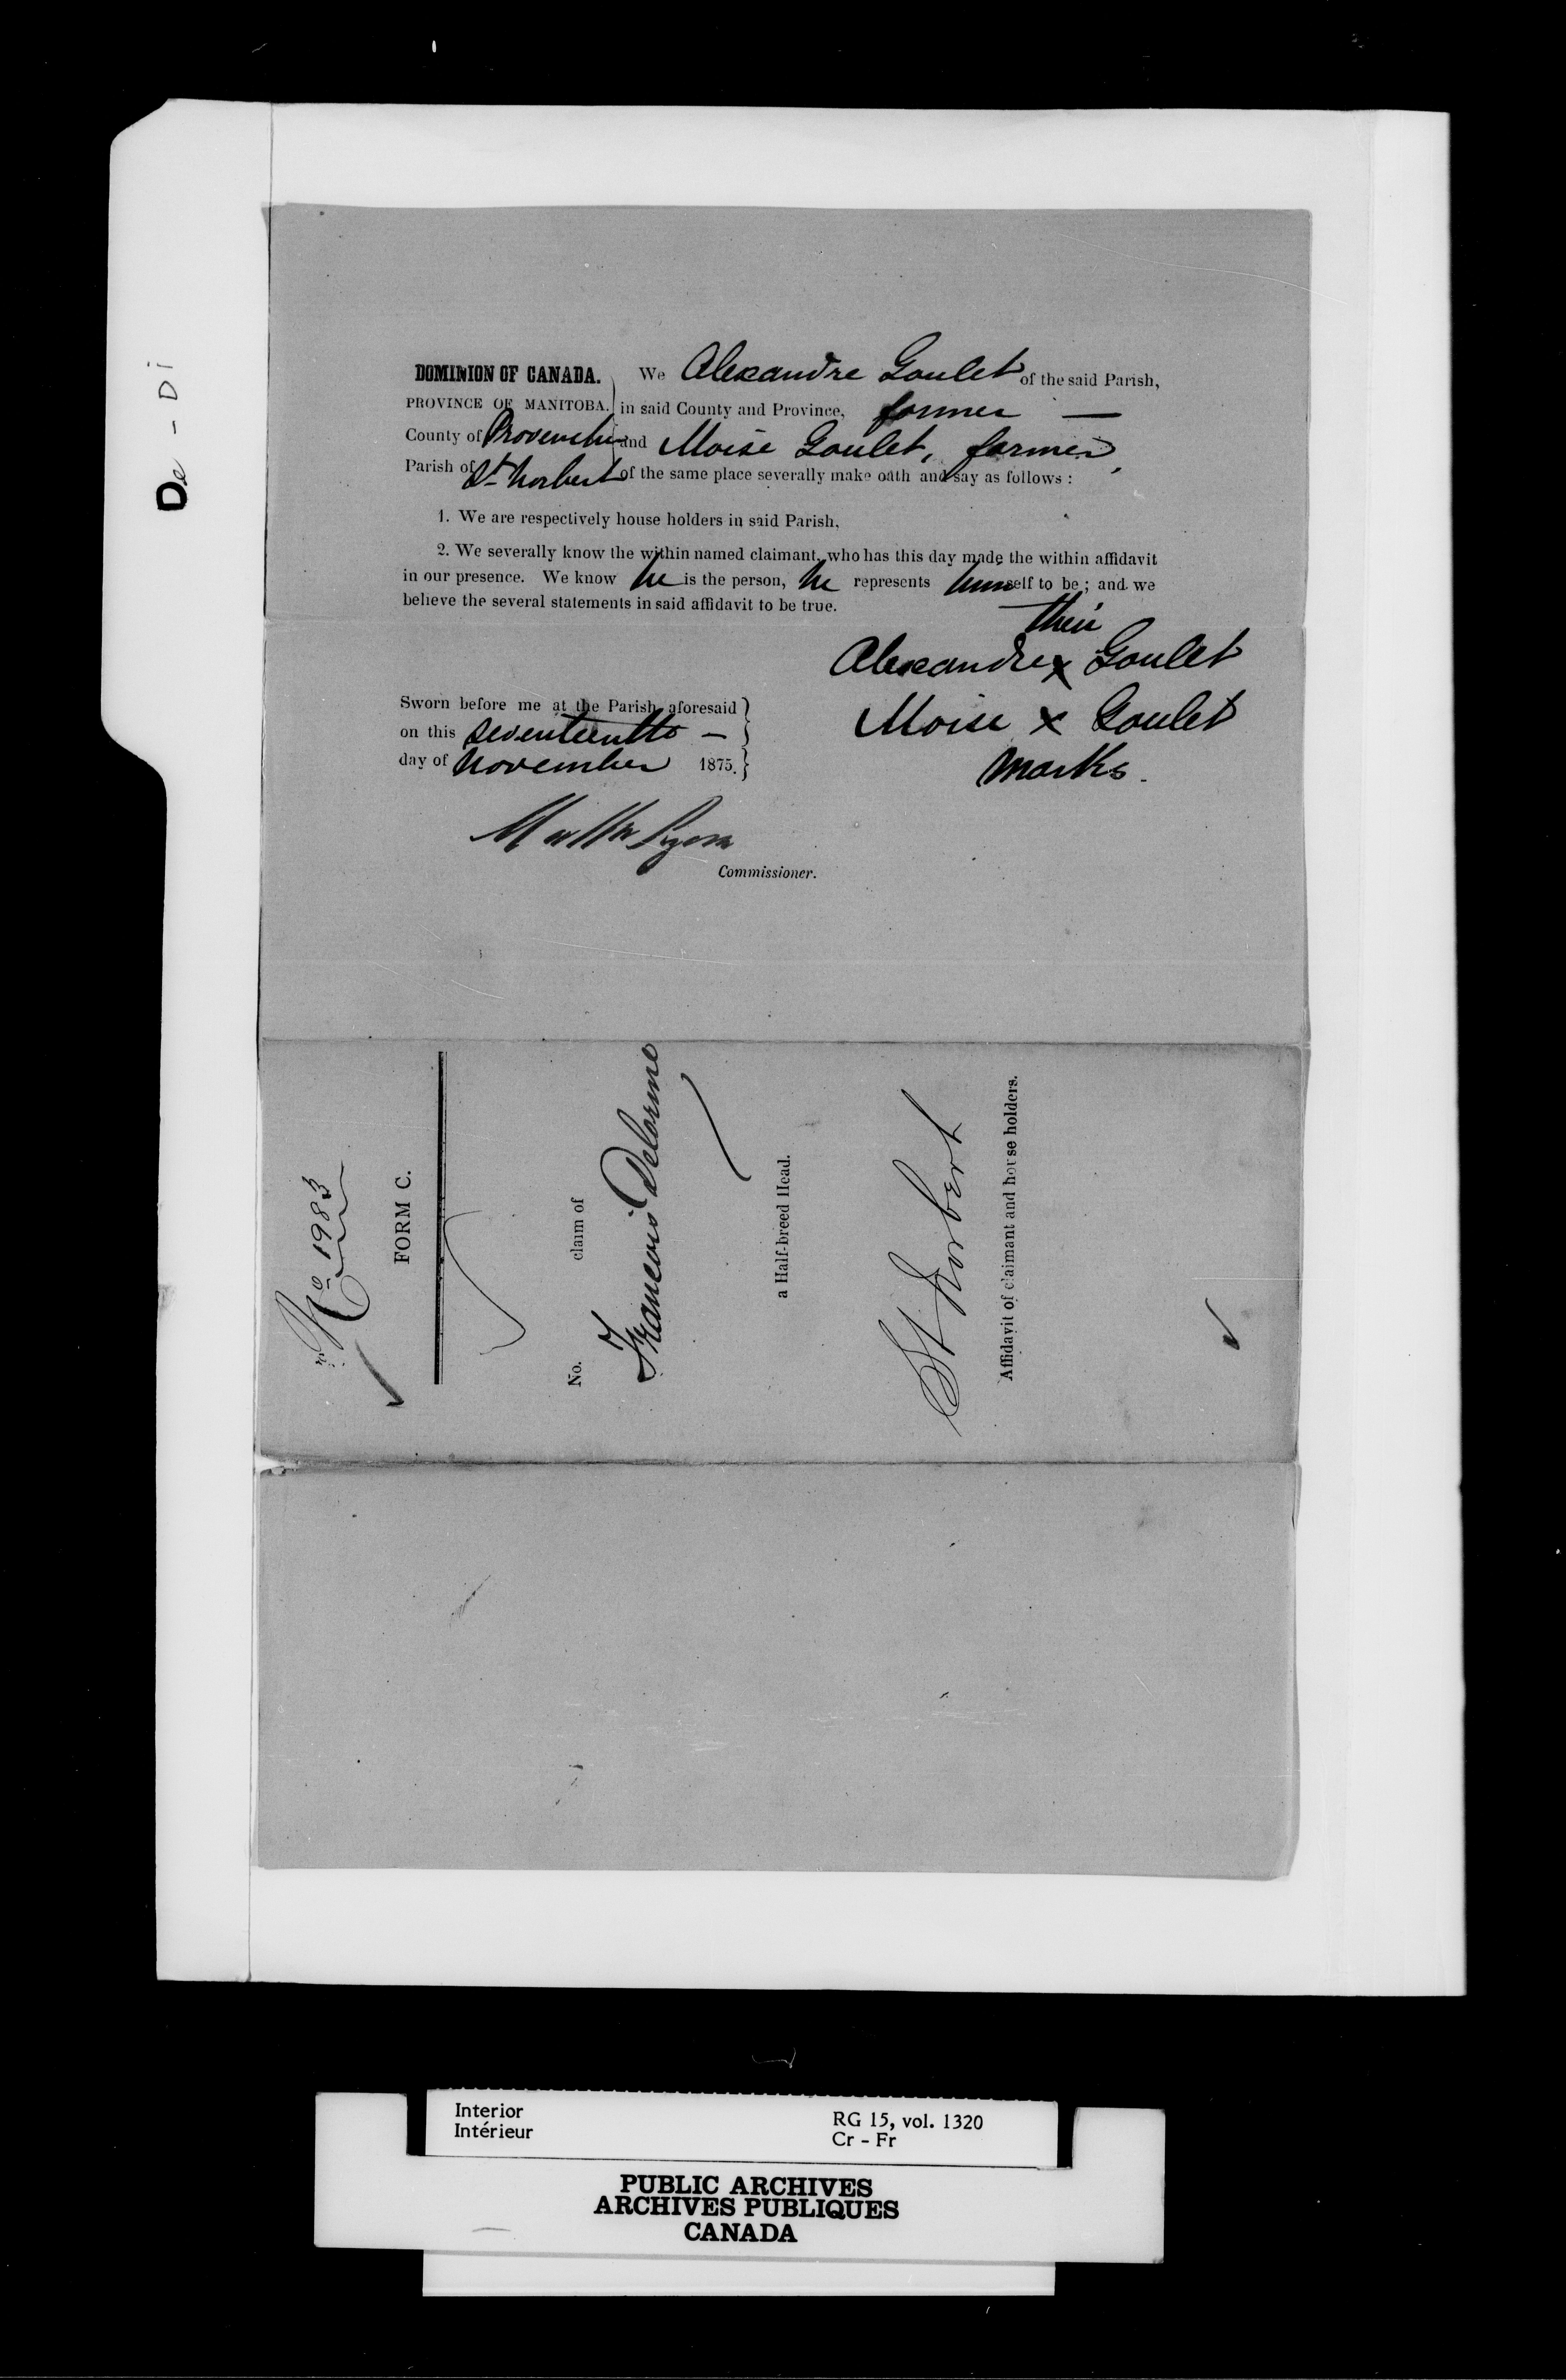 De - Di
DOMINION OF CANADA. We Alexandre Goulet of the said Parish,
PROVINCE OF MANITOBA. in said County and Province, farmer —
County of Provencher and Moise Goulet, farmer,
Parish of St. Norbert of the same place severally make oath and say as follows :
1. We are respectively house holders in said Parish.
2. We severally know the within named claimant, who has this day made the within affidavit
in our presence. We know he is the person, he represents himself to be ; and we
believe the several statements in said affidavit to be true.
their
Alexandre x Goulet
Moise x Goulet
marks.
Sworn before me at the Parish aforesaid
on this seventeenth —
day of November 1875.
Commissioner.
No 1983
FORM C.
No. claim of
Francois Delorme
a Half-breed Head.
St Norbert
Affidavit of claimant and house holders.
Interior
Intérieur
RG 15, vol. 1320
Cr - Fr
PUBLIC ARCHIVES
ARCHIVES PUBLIQUES
CANADA